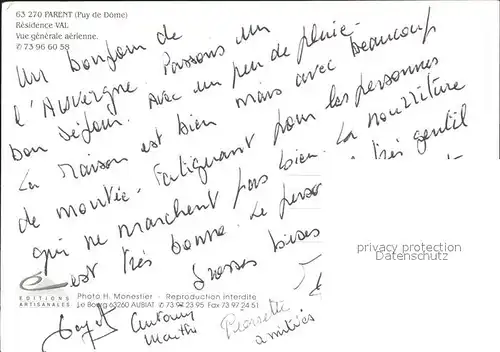 63 270 PARENT (Puy de Dôme)
Résidence VAL
Vue générale aérienne.
✆ 73 96 60 58
Un bonjour de
l'Auvergne. Passons un
bon séjour. avec un peu de pluie.
La maison est bien mais avec beaucoup
de montée. Fatiguant pour les personnes
qui ne marchent pas bien. La nourriture
est très bonne. Le perso
très gentil
Grosses bises
privacy protection
Datenschutz
EDITIONS
ARTISANALES
Photo H. Monestier - Reproduction interdite
Le Bourg 63260 AUBIAT ✆ 73 97 23 95 Fax 73 97 24 51
Antoing
Marthe
Pierrette
amitiés